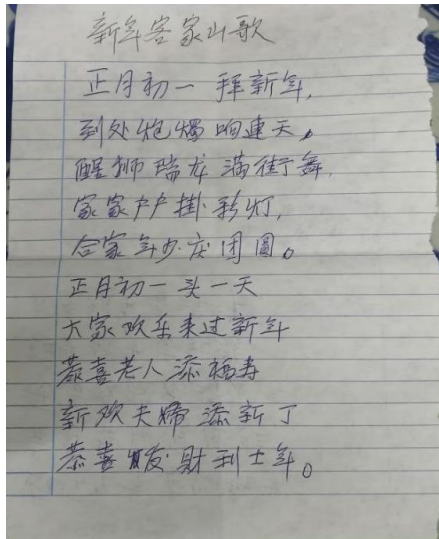 新年客家山歌
正月初一拜新年,
到处炮燭响連天。
醒狮瑞龙满街舞,
家家户户掛彩灯,
合家年少庆团圓。
正月初一头一天
大家欢乐来过新年
恭喜老人添福寿
新欢夫婦添新丁
恭喜發财利士年。